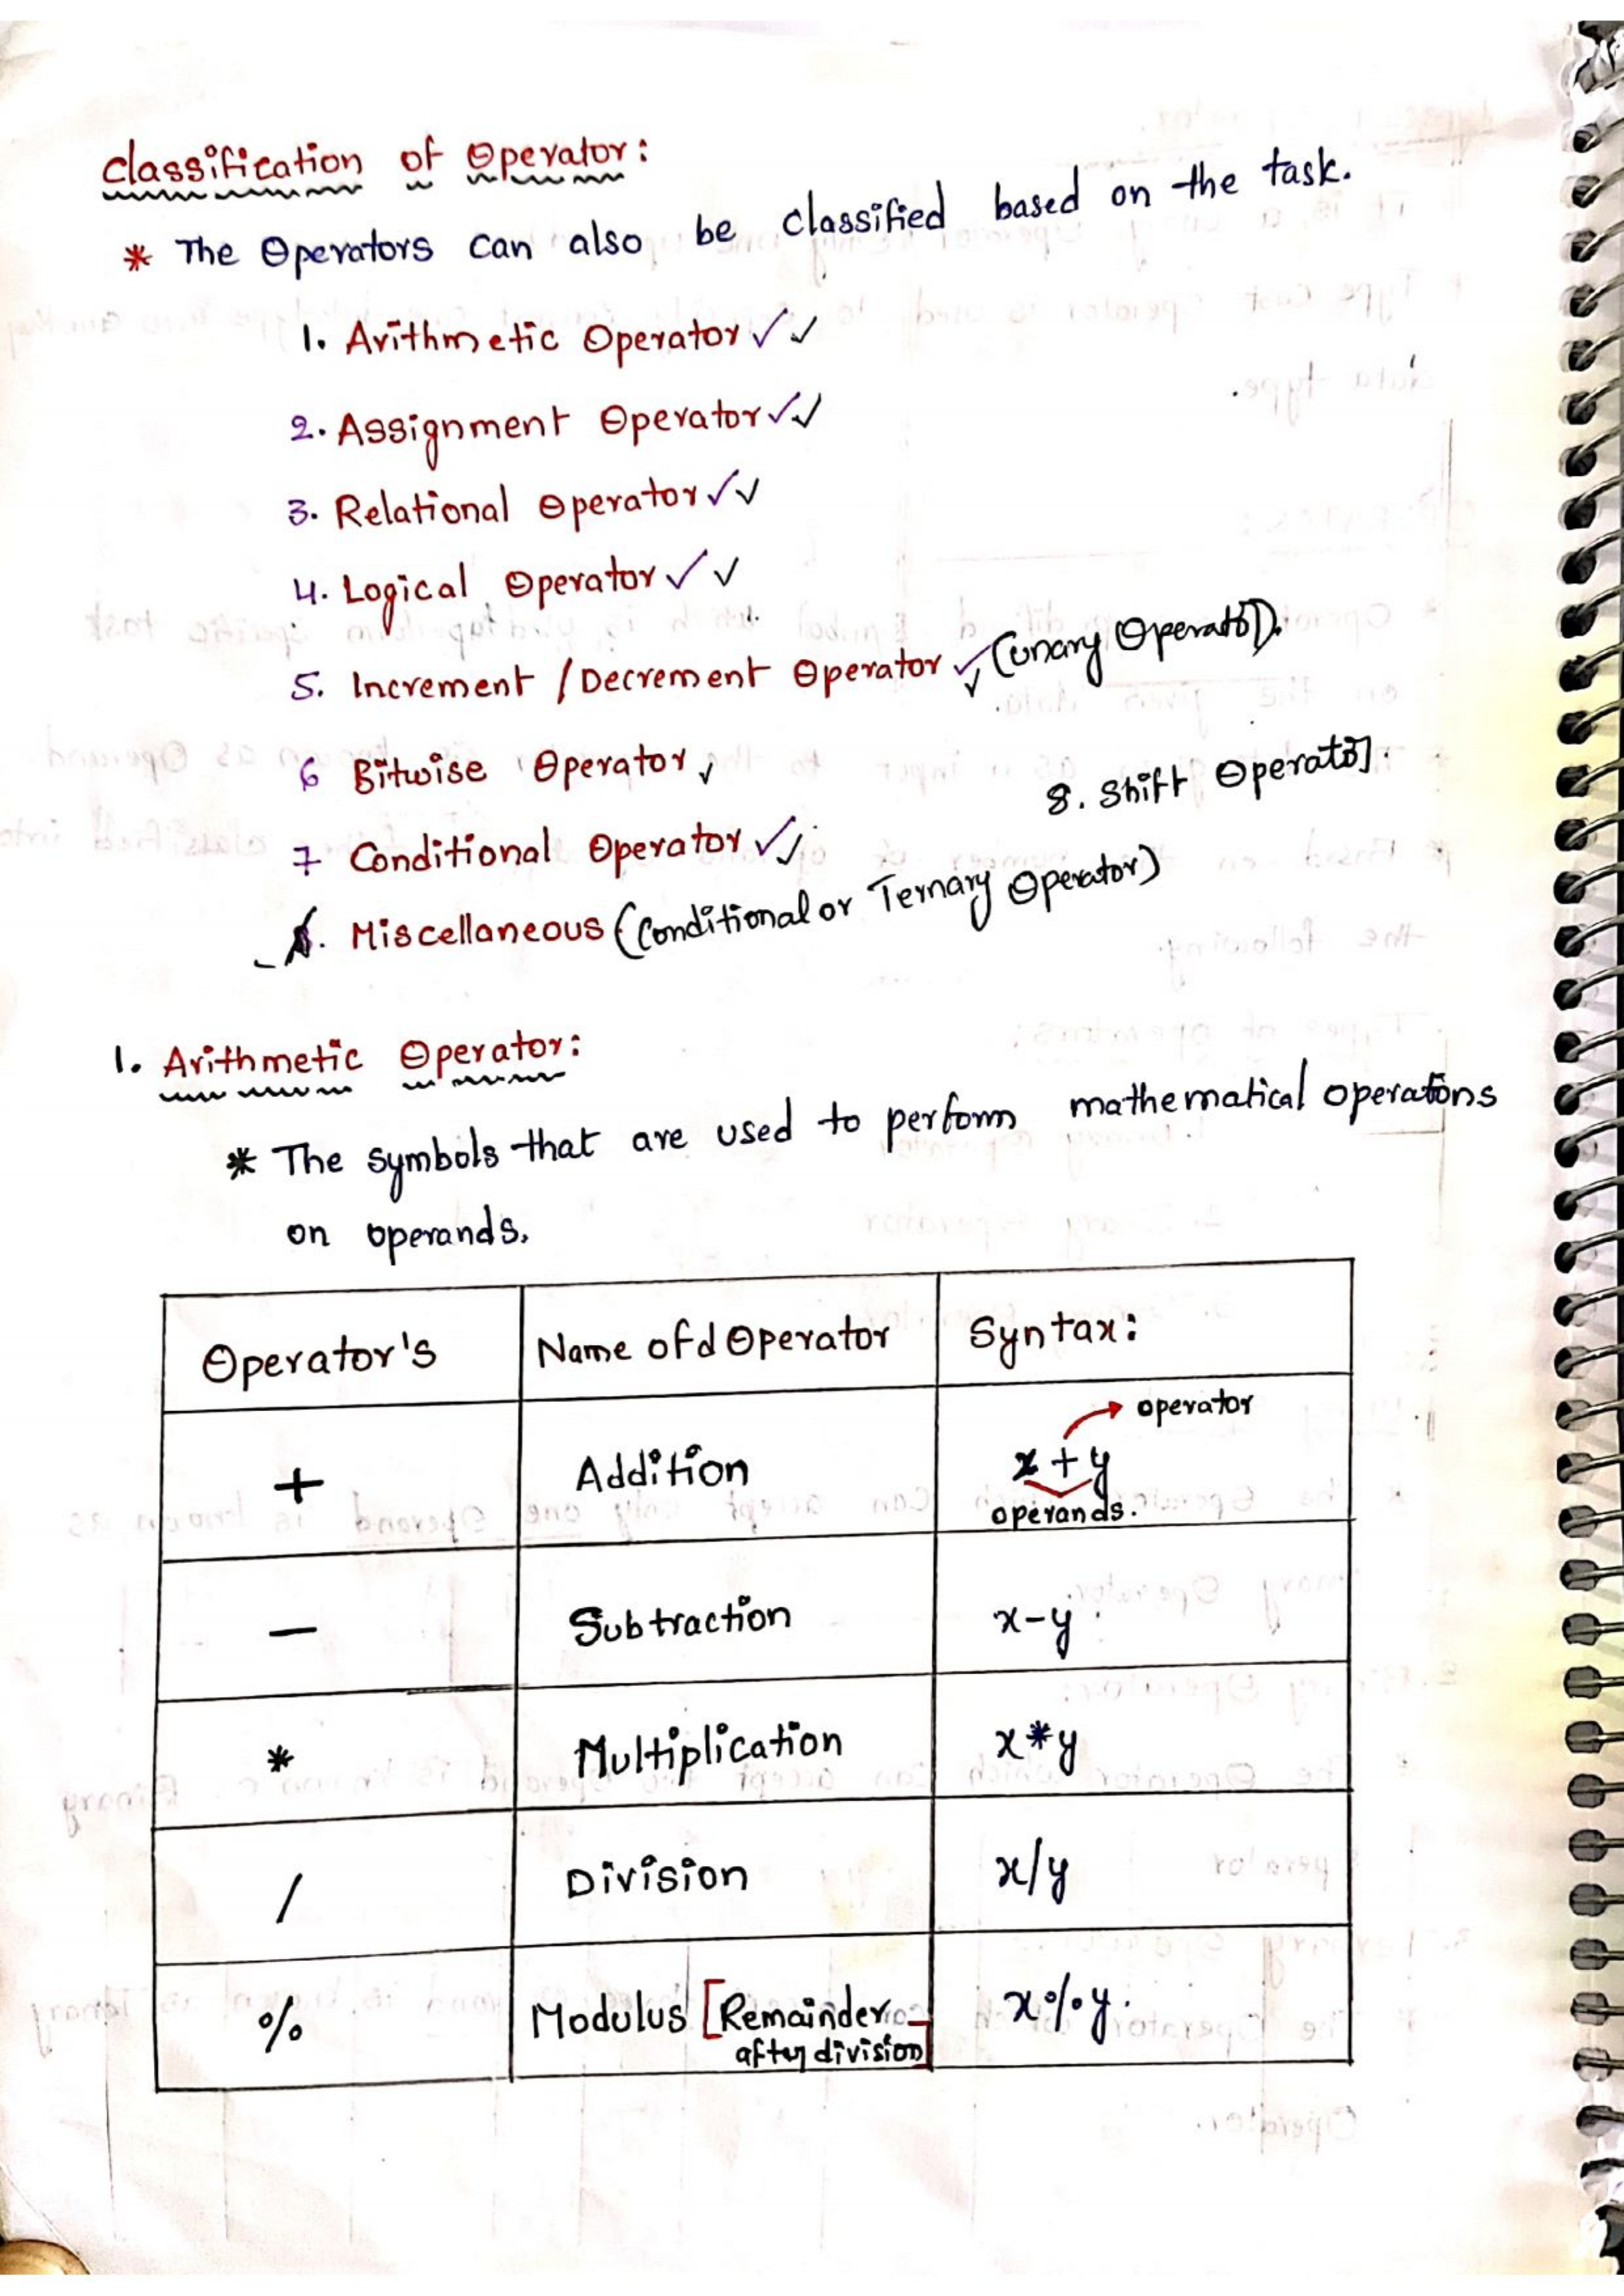 Classification of Operator:
* The Operators can also be classified based on the task.
1. Arithmetic Operator ✓✓
2. Assignment Operator ✓✓
3. Relational Operator ✓✓
4. Logical Operator ✓✓
5. Increment / Decrement Operator ✓✓ (Unary Operator).
6 Bitwise Operator ✓
8. Shift Operator.
7 Conditional Operator ✓✓
8. Miscellaneous (Conditional or Ternary Operator)
1. Arithmetic Operator:
* The symbols that are used to perform mathematical operations
on operands.
Operator's Name of d Operator Syntax:
operator
+ Addition x + y
operands.
— Subtraction x-y.
* Multiplication x*y
/ Division x/y
% Modulus [Remainder x%y.
after division]